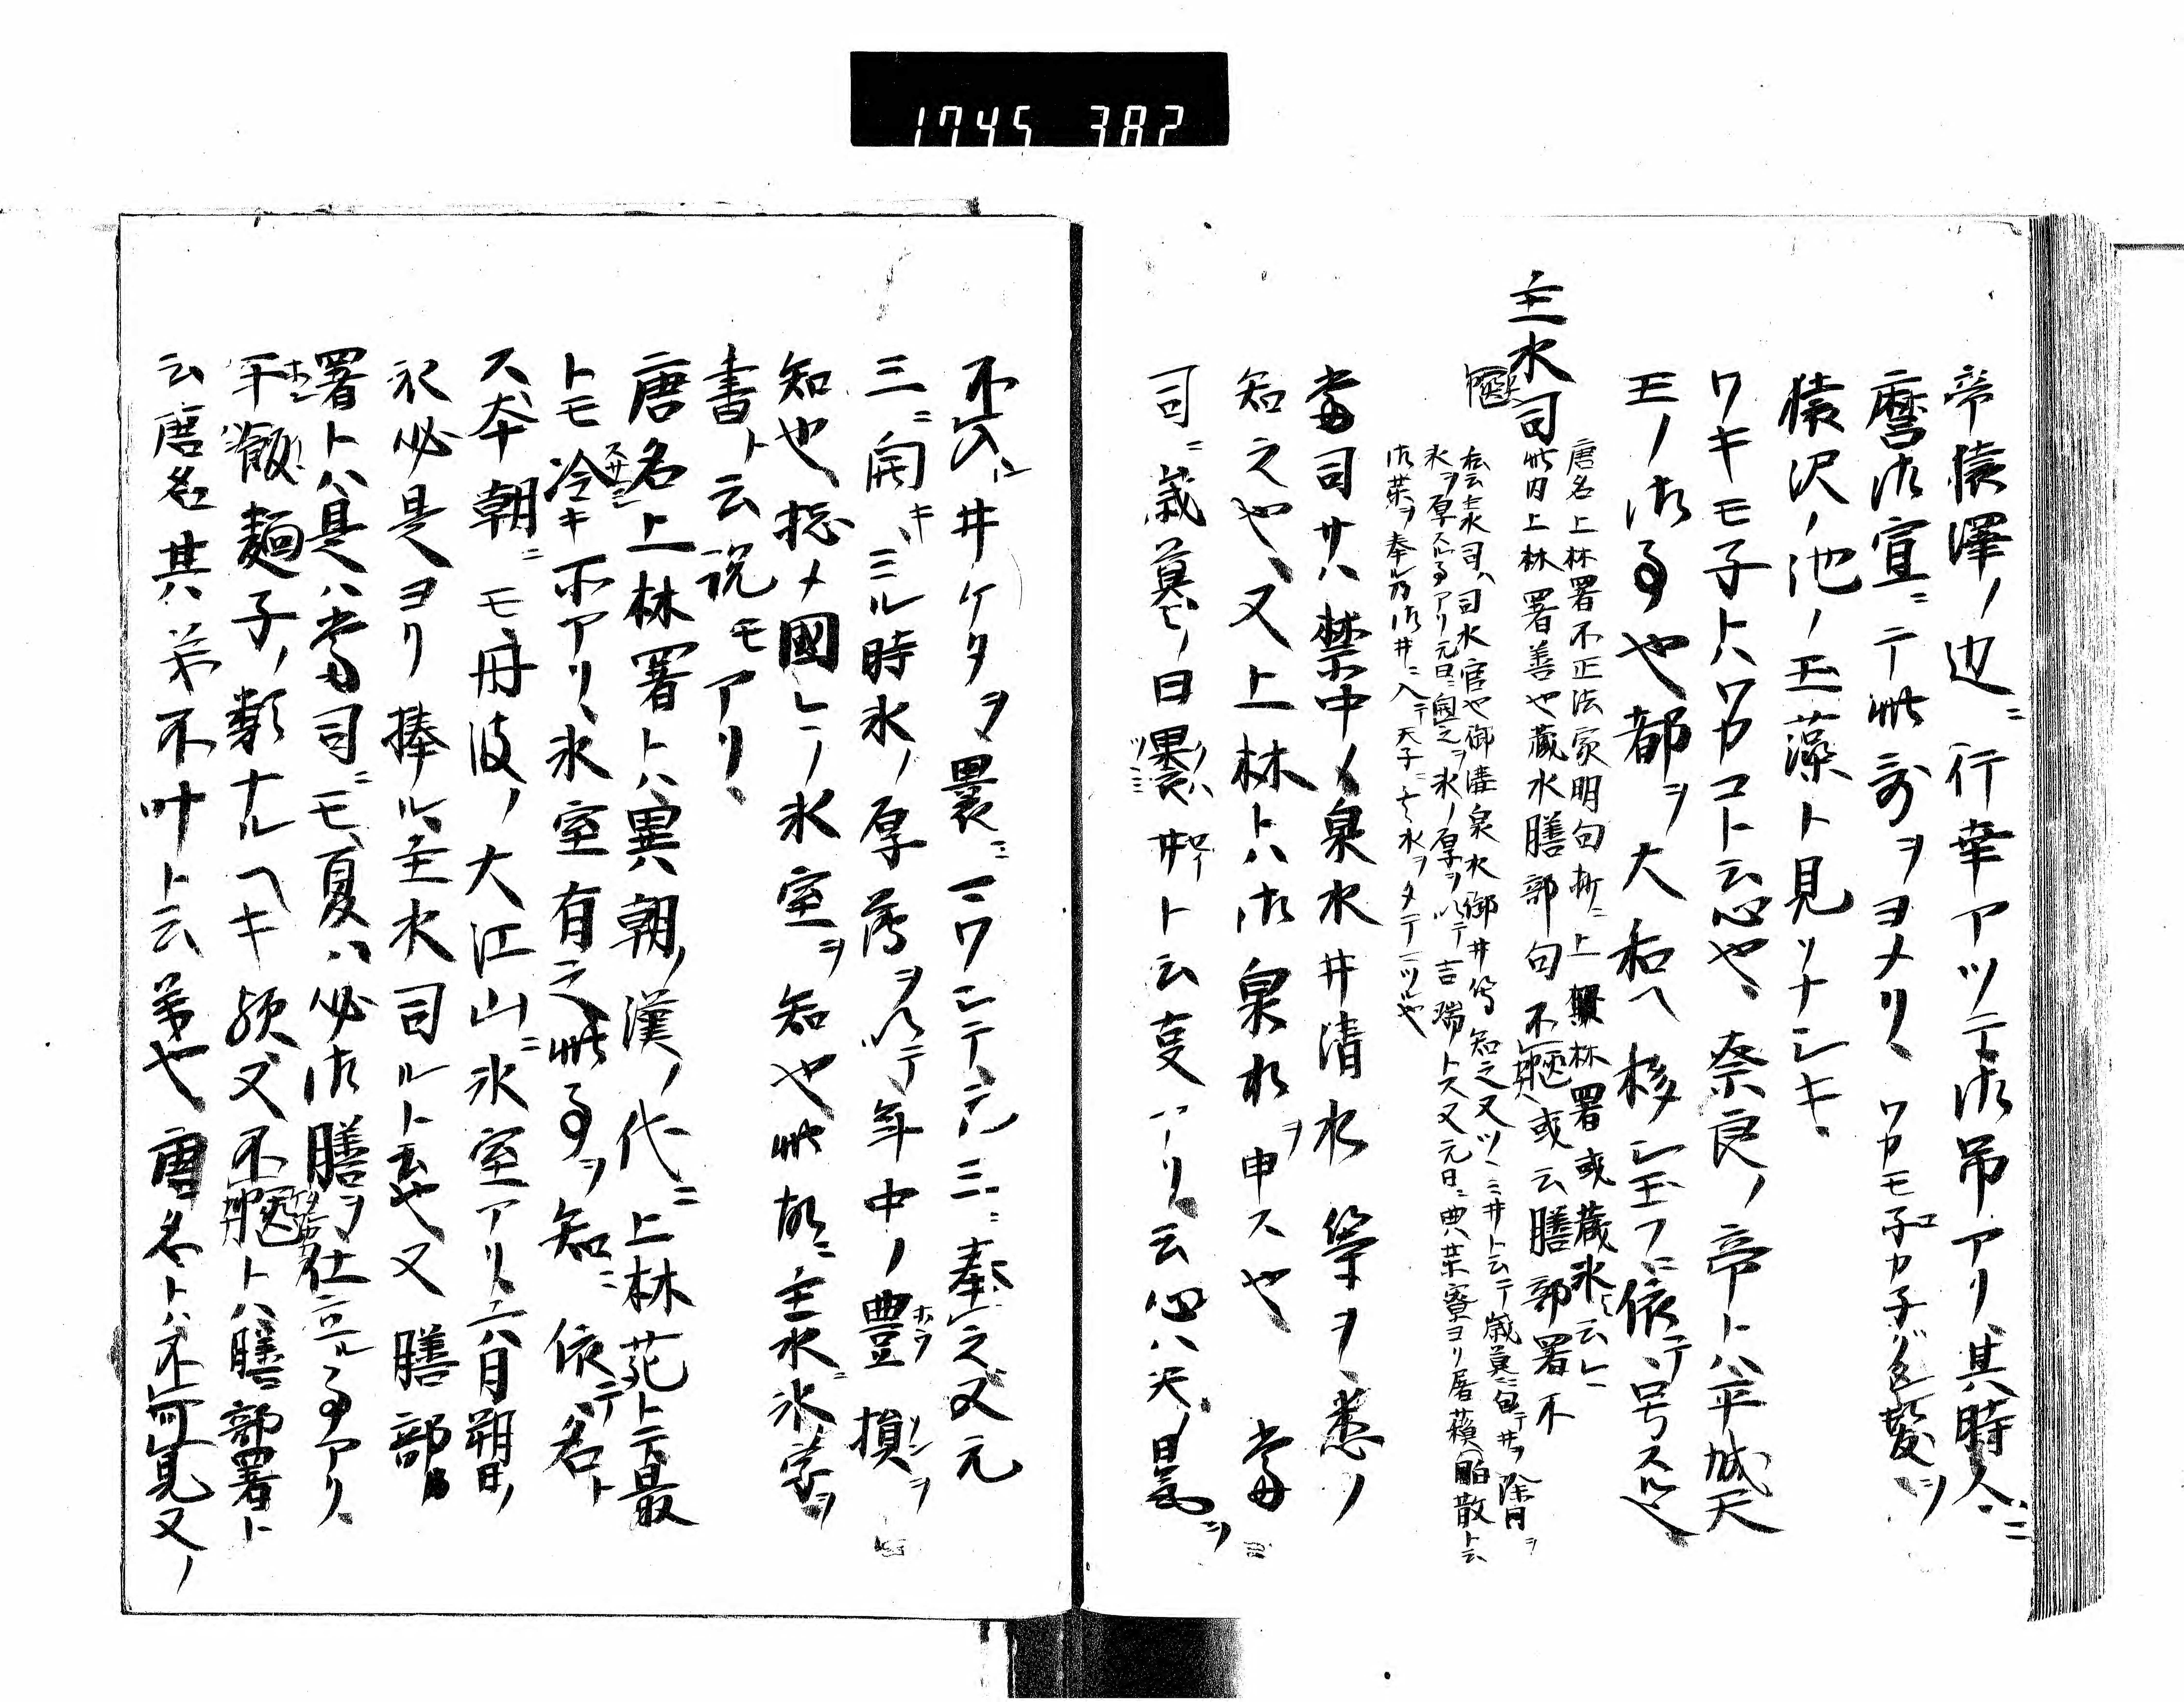 1745 382
帝猿澤ノ辺ニ行幸アツテ御吊アリ、其時人ニ
麿御宣ニテ此哥ヲヨメリ、ワカモ子カ子グタレ髪ヲ
猿沢ノ池ノ玉藻ト見ソナシキ、
ワキモ子トハワカコト云心也、奈良ノ帝トハ平城天
王ノ御事也都ヲ大和ヘ移シ玉フニ依テ号ス也
主水司
唐名上林署不正法家明句折ニ上林署或蔵氷ト云レ
此内上林署善也蔵氷膳部句不或云膳部署不
私云主水司ハ司水官也御溝泉水御井等知之又ツヽミ井ト云テ歳暮ニ包テ井ヲ除月ヲ
氷ヲ厚スル事アリ元日ニ奏之ヲ氷ノ厚ヲ以テ吉瑞トス又元日ニ典薬寮ヨリ屠蘓白散ト云
御薬ヲ奉ル为御井ニ入テ天子ニ主水ヲタテマツル也
当司サハ禁中ノ泉水井清水等ヲ悉ノ
知之也、又上林トハ御泉水ヲ申ス也 当
司ニ歳暮ノ日裹井ト云事アリ、云心ハ天ノ曇ヲ
不入井ケタヲ裹ニマワシテ元三ニ奉之又元
三ニ開キミル時氷ノ厚薄ヲ以テ年中ノ豊損ヲ
知也捴メ國ニノ氷室ヲ知也此故ニ主水氷字ヲ
書ト云説モアリ、
唐名上林署トハ異朝ノ漢ノ代ニ上林苑トテ最
トモ冷キ所アリ、氷室有之此事ヲ知ニ依テ名ト
ス本朝ニモ丹波ノ大江山ニ氷室アリ、六月朔日ノ
氷必是ヨリ捧ル主水司ルト云也又膳部
署トハ是ハ当司ニモ夏ハ必御膳ヲ仕立ル事アリ、
干飯麺子ノ類ナルヘキ欤又不トハ膳部署ト
云唐名其ハ弟不叶ト云義也唐名トハ不可見又ノ